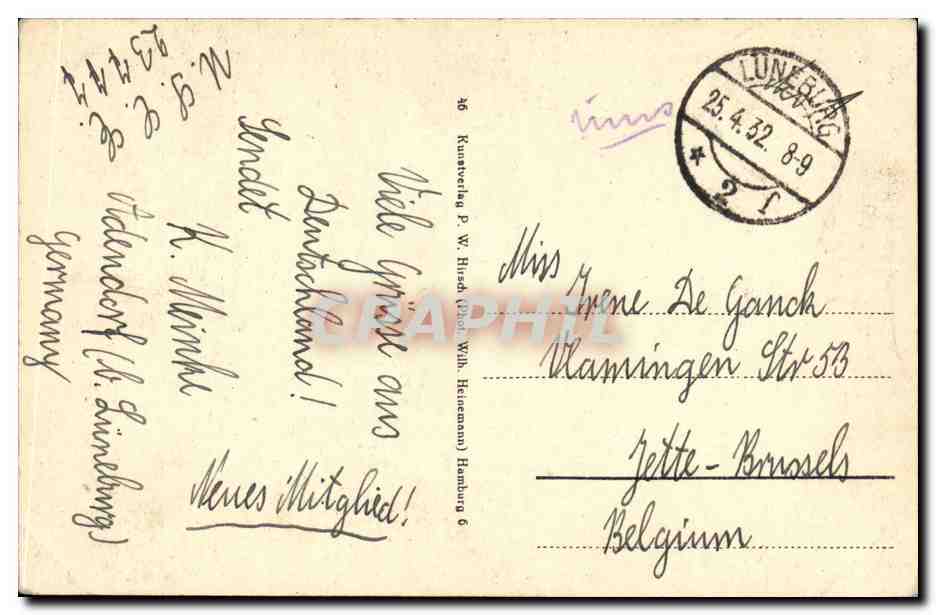 Viele Grüsse aus
Deutschland!
Sendet
K. Meinke
Adendorf (b. Lüneburg)
Germany
Neues Mitglied!
46 Kunstverlag P. W. Hirsch (Phot. Wilh. Heinemann) Hamburg 6
LÜNEBURG
25.4.32. 8-9
* 2 f
Miss
Irene De Ganck
Vlamingen Str 53
Jette-Brussels
Belgium
CPAPHIL